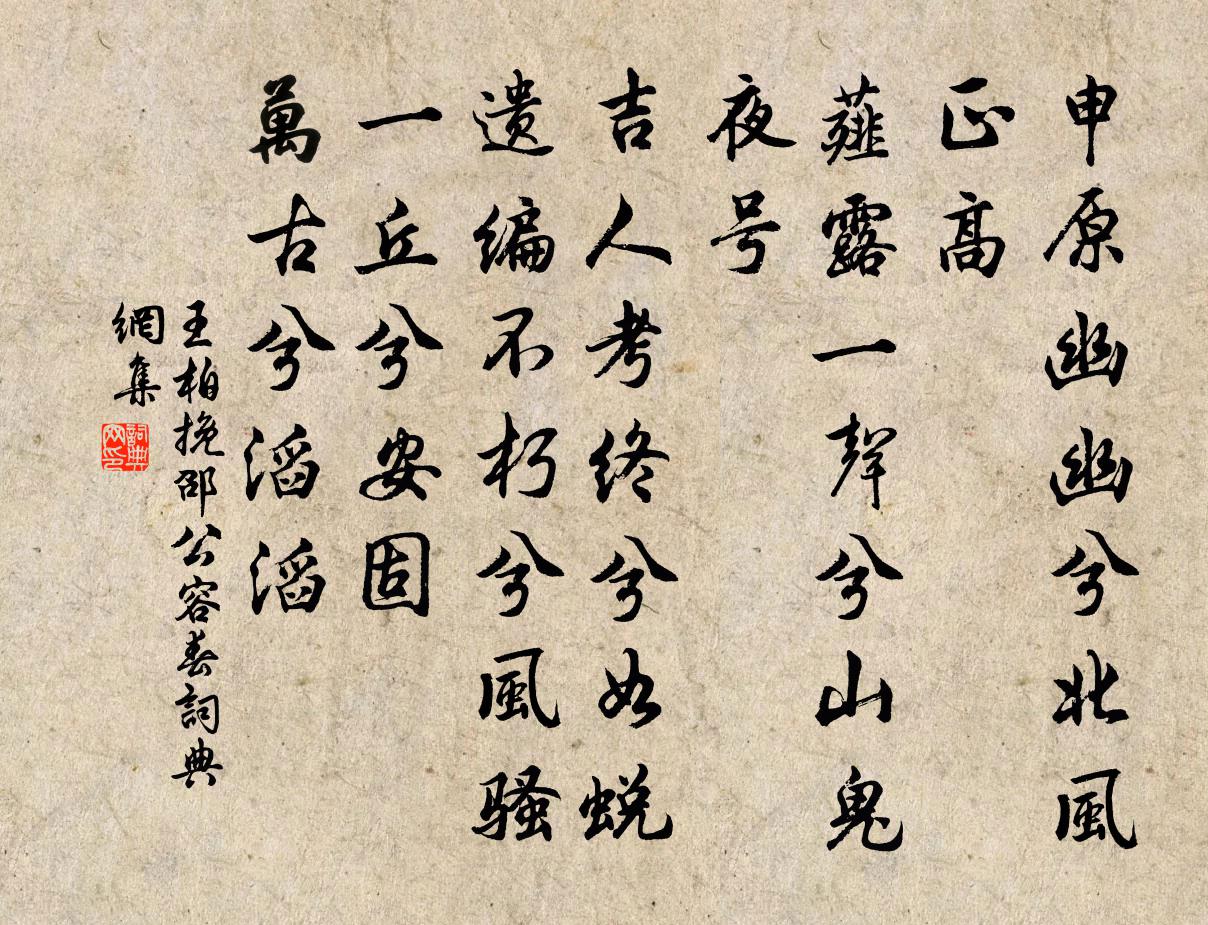 申原幽幽兮北風
正高
薤露一聲兮山鬼
夜号
吉人考终兮如蜕
遗编不朽兮風骚
一丘兮安固
萬古兮滔滔
王柏挽邵公容春詞典
網集
詞典
网印